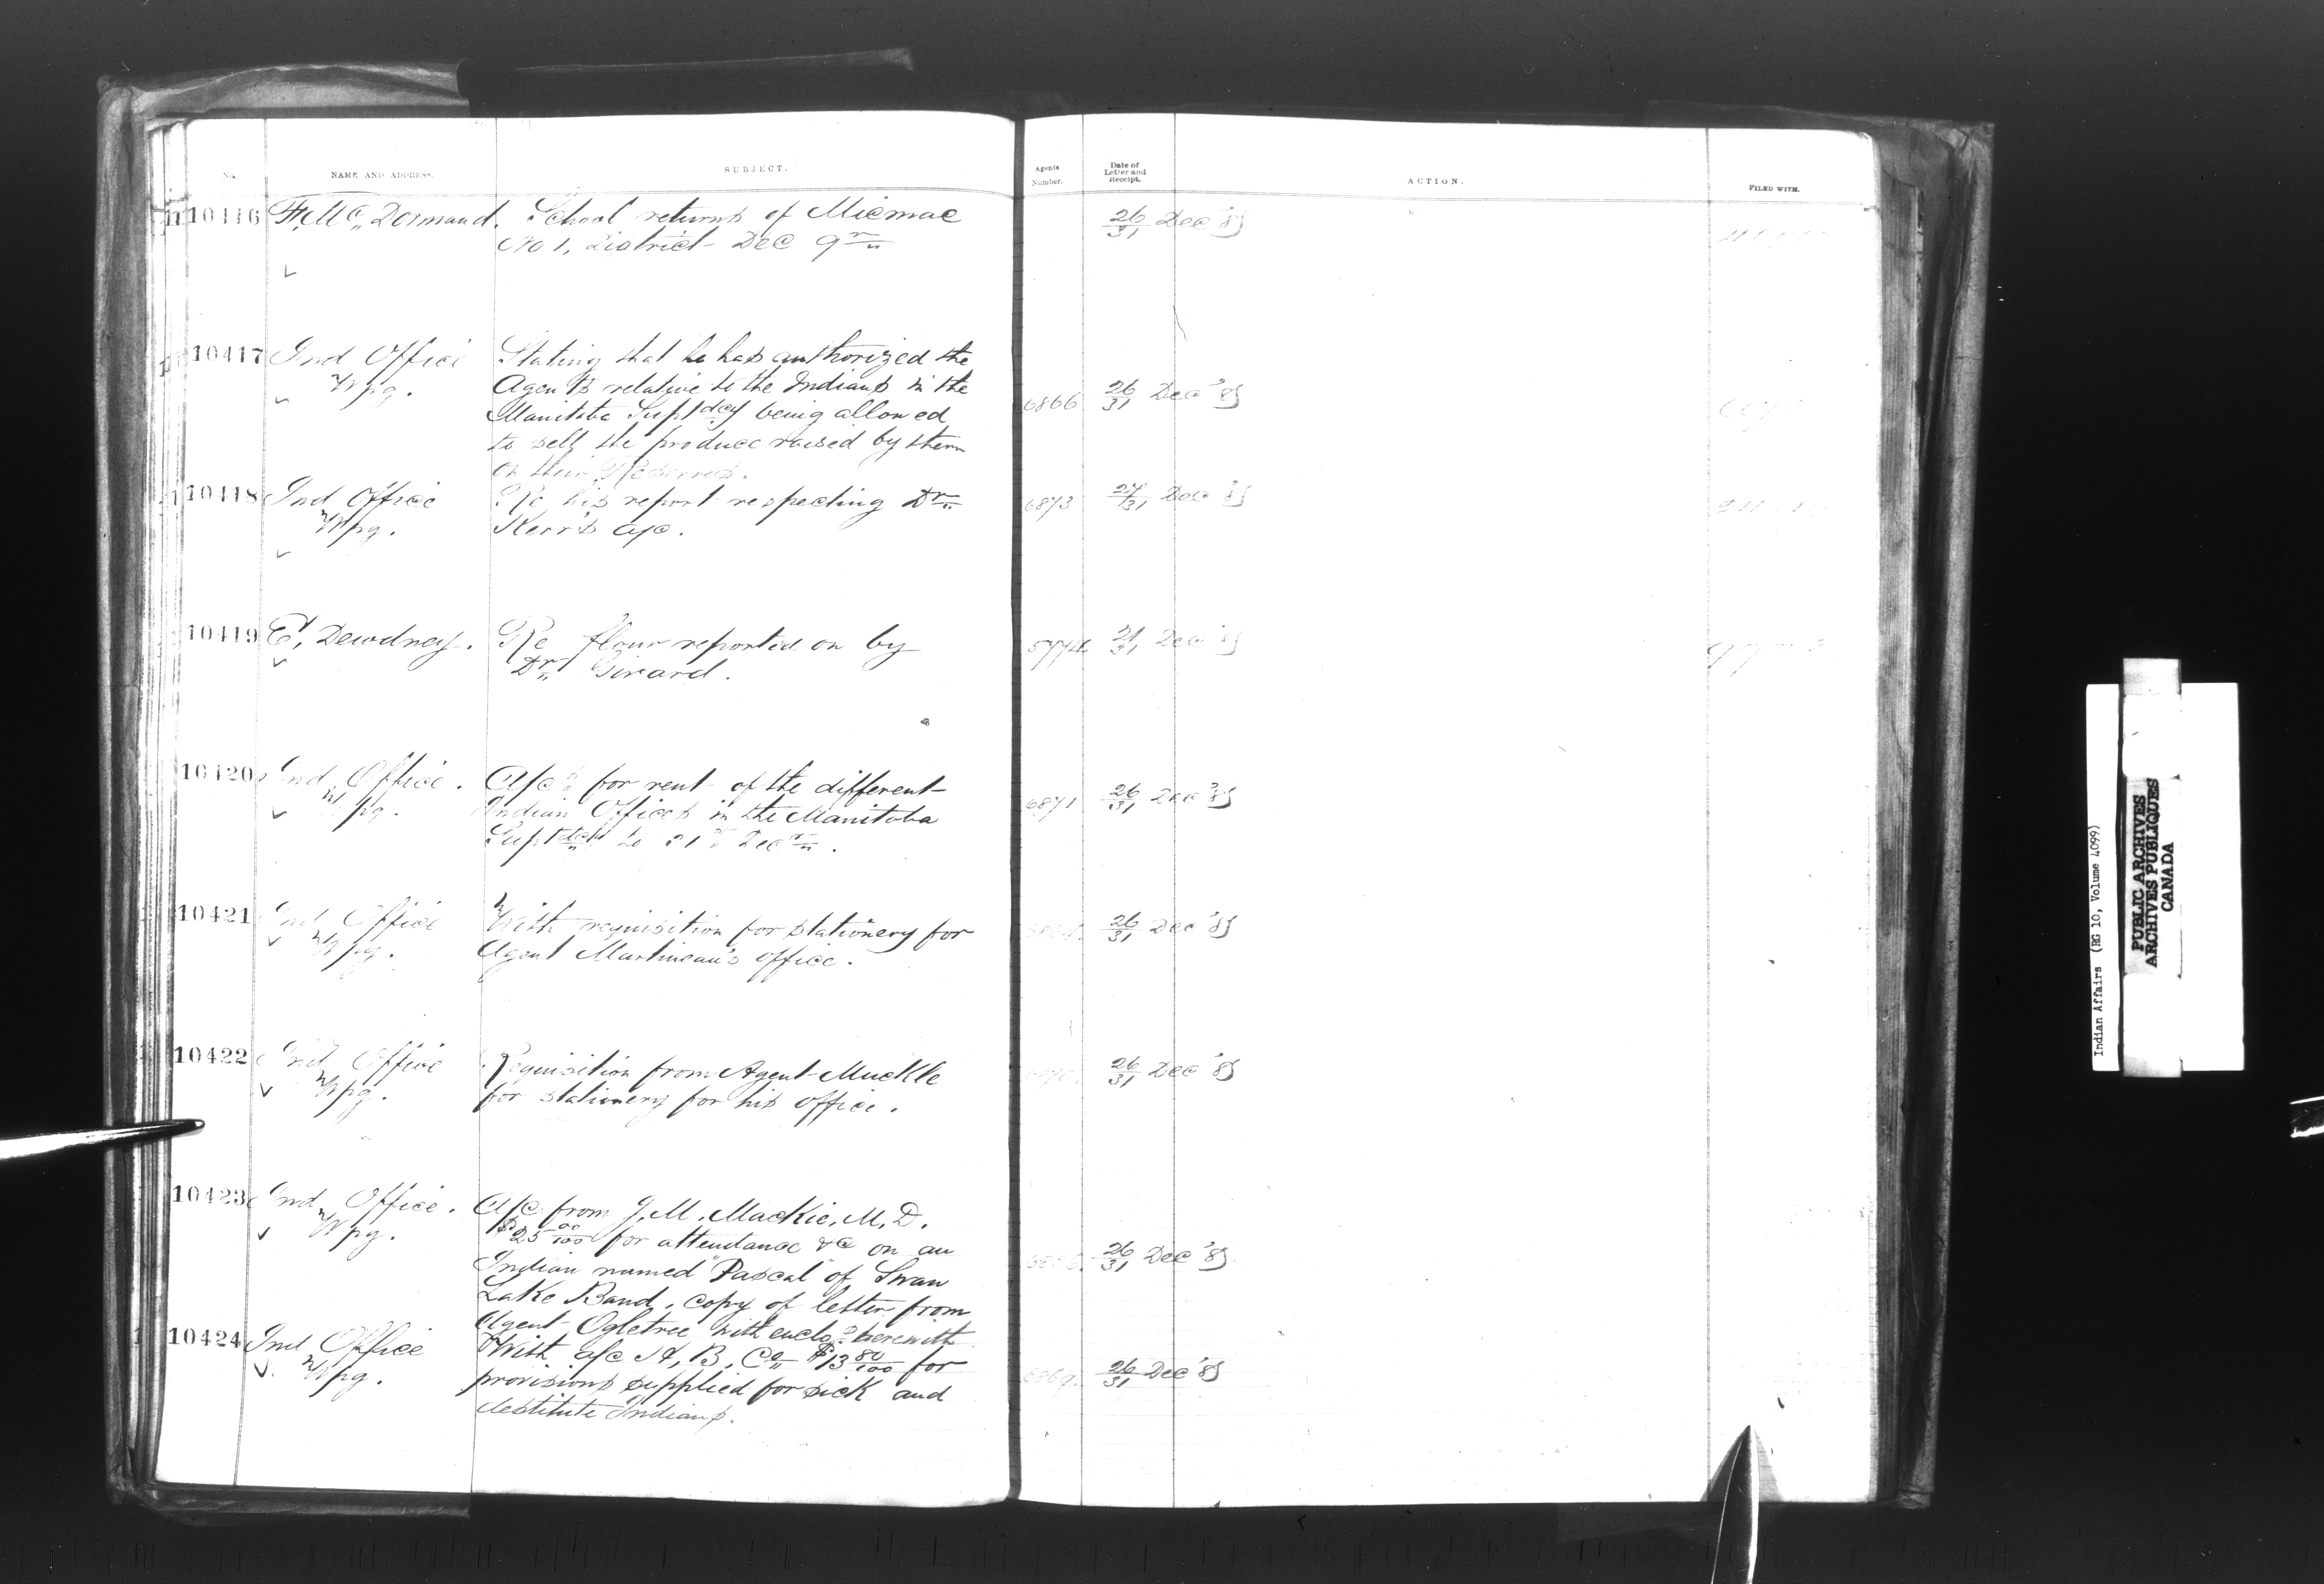 No. NAME AND ADDRESS. SUBJECT. Agents Number. Date of Letter and Receipt. ACTION. FILED WITH.
10416 F. Mc. Dormand. School returns of Micmac 26/31 Dec '85
No 1, District Dec qr
10417 Ind Office Stating that he has authorized the
Wpg. Agents relative to the Indians in the 6866 26/31 Dec '85
Manitoba Suptdcy being allowed
to sell the produce raised by them
on their Reserves.
10418 Ind Office Re his report respecting Dr 6873 31 Dec '85
Wpg. Kerr's a/c.
10419 E. Dewdney. Re flour reported on by 31 Dec '85
Dr Girard.
10420 Ind Office. A/cs for rent of the different
Wpg. Indian Offices in the Manitoba 6871 26/31 Dec '85
Suptdcy to 31st Decr.
10421 Ind Office With requisition for stationery for 26/31 Dec '85
Wpg. Agent Martineau's office.
10422 Ind Office Requisition from Agent Muckle 26/31 Dec '85
Wpg. for stationery for his office.
10423 Ind Office. A/c from J. M. Mackie, M. D.
Wpg. $25 00/100 for attendance &c on an
Indian named "Pascal" of Swan 26/31 Dec '85
Lake Band. Copy of letter from
Agent Ogletree with enclo. herewith
10424 Ind Office With a/c H. B. Co $13 80/100 for
Wpg. provisions supplied for sick and 6869. 26/31 Dec '85
destitute Indians.
Indian Affairs (RG 10, Volume 4099)
PUBLIC ARCHIVES
ARCHIVES PUBLIQUES
CANADA